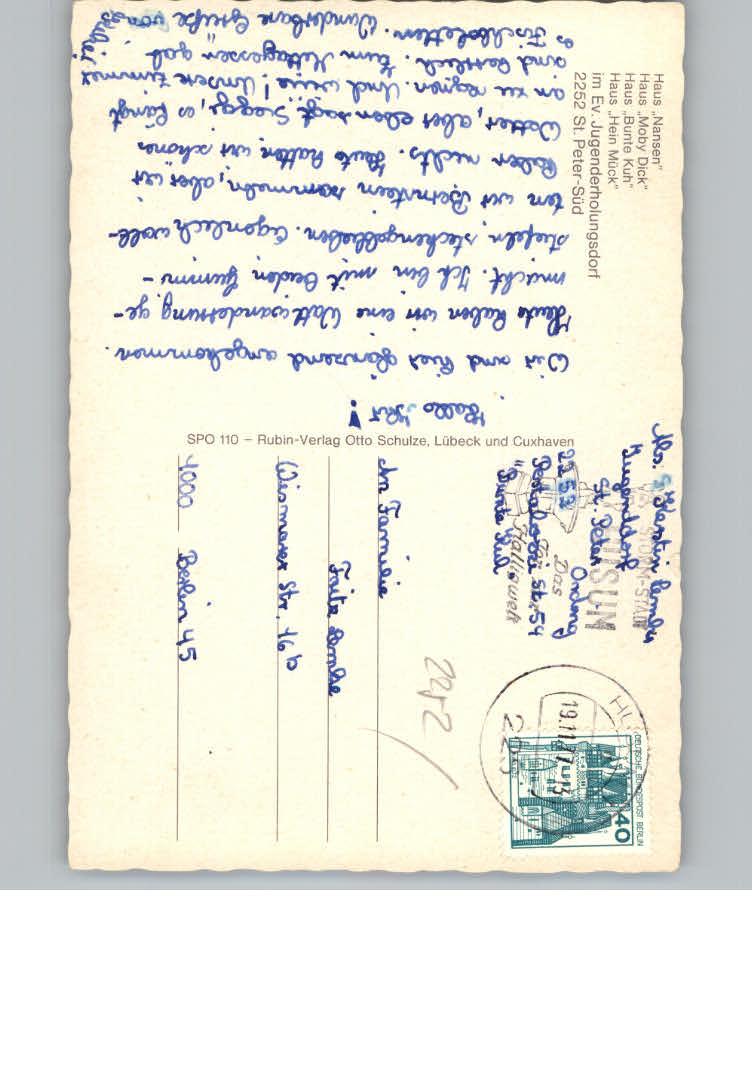 Haus „Nansen"
Haus „Moby Dick"
Haus „Bunte Kuh"
Haus „Hein Mück"
im Ev. Jugenderholungsdorf
2252 St. Peter-Süd
Hallo Ihr!
Wir sind hier glänzend angekommen.
Heute haben wir eine Wattwanderung ge-
macht. Ich bin mit beiden Gummi-
stiefeln steckengeblieben. Eigenlech woll-
ten wir Bernsteen sammeln, aber wir
haben nichts. Heute hatten wir schönes
Wetter, aber eben sagt Siggi, es fängt
an zu regnen. Und wie! Unsere Zimmer
sind herrlich. Zum Mittagessen gab
es Fischboletten. Wunderbare Grüße von
SPO 110 – Rubin-Verlag Otto Schulze, Lübeck und Cuxhaven
Abs.
Jugenddorf
St. Peter Ording
2252
Pestalozzi Str. 54
"Bunte Kuh"
STORM-STADT
HUSUM
Das
Tor zur
Halligwelt
19.11.77-13
22
DEUTSCHE BUNDESPOST BERLIN
40
2252
An Familie
Fritz
Wismarer Str. 16 b
1000 Berlin 45